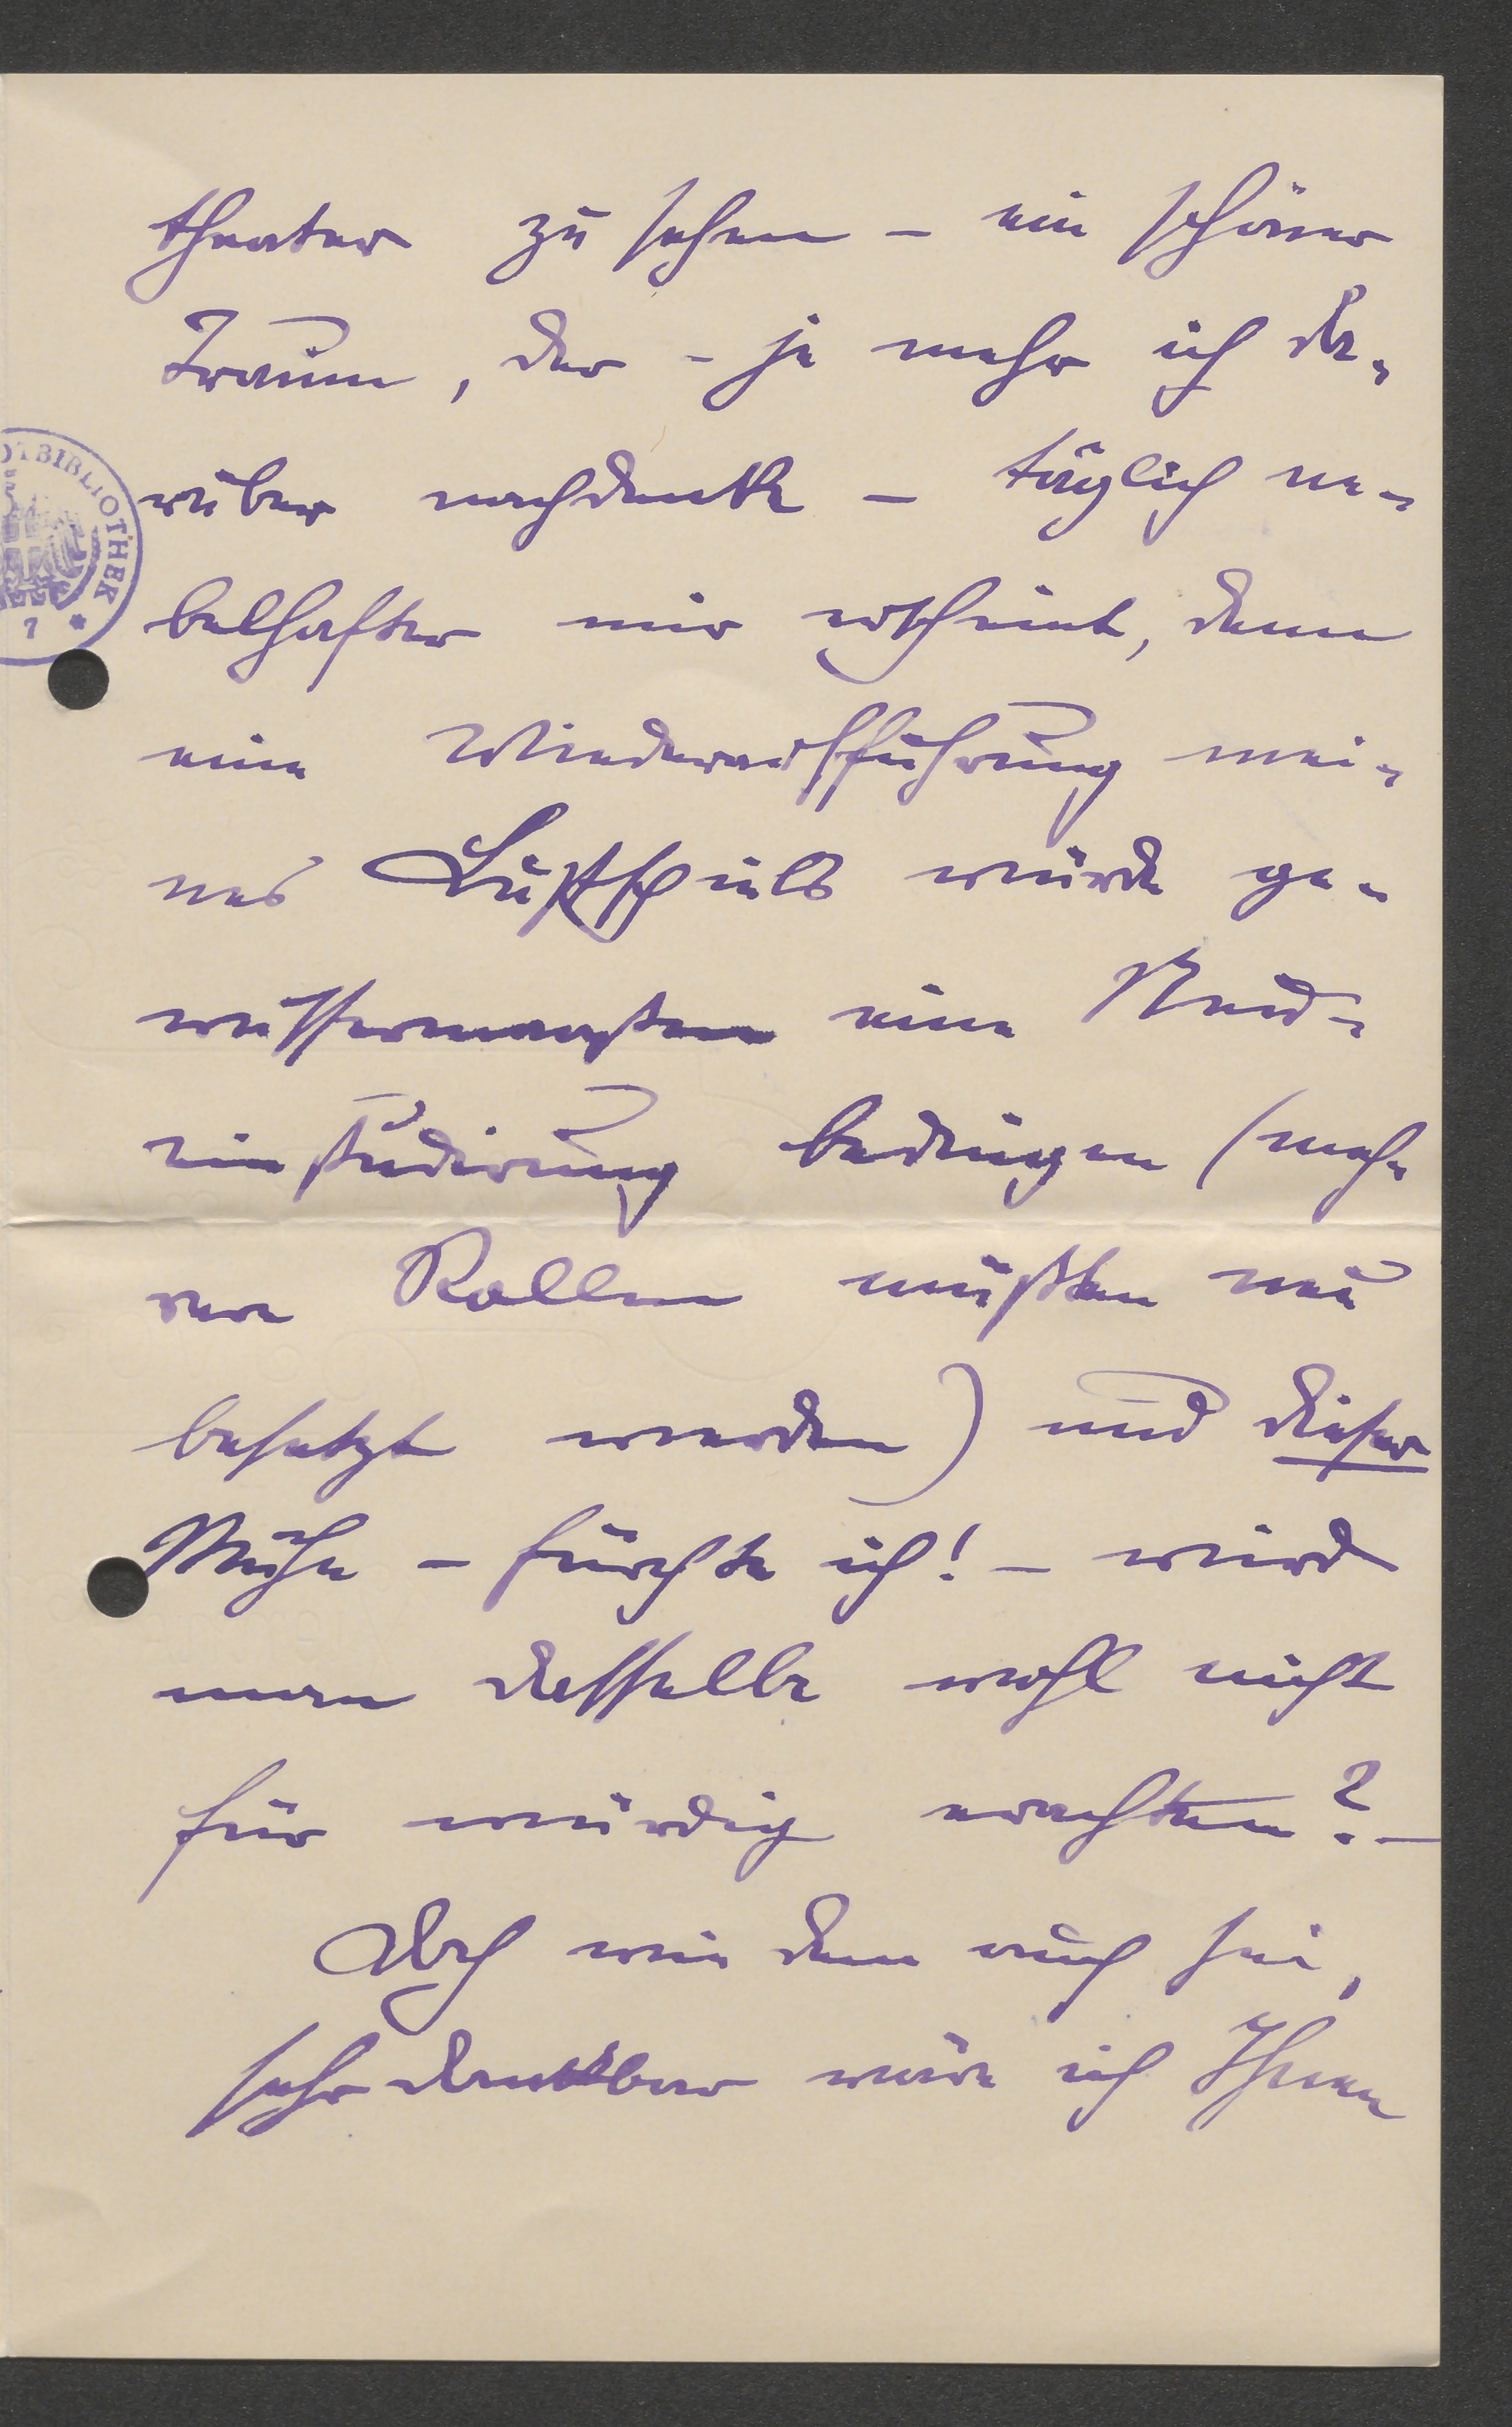 theater zu sehen – ein schöner
Traum, der – je mehr ich da-
rüber nachdenke – täglich ne-
belhafter mir erscheint, denn
eine Wiederaufführung mei-
nes Lustspiels würde ge-
wissermaßen eine Neu-
einstudirung bedingen (meh-
rere Rollen müßten neu
besetzt werden) und dieser
Mühe – fürchte ich! – wird
man dasselbe wohl nicht
für würdig erachten? –
Doch wie dem auch sei,
sehr dankbar wäre ich Ihnen
DTBIBLIOTHEK
7 *